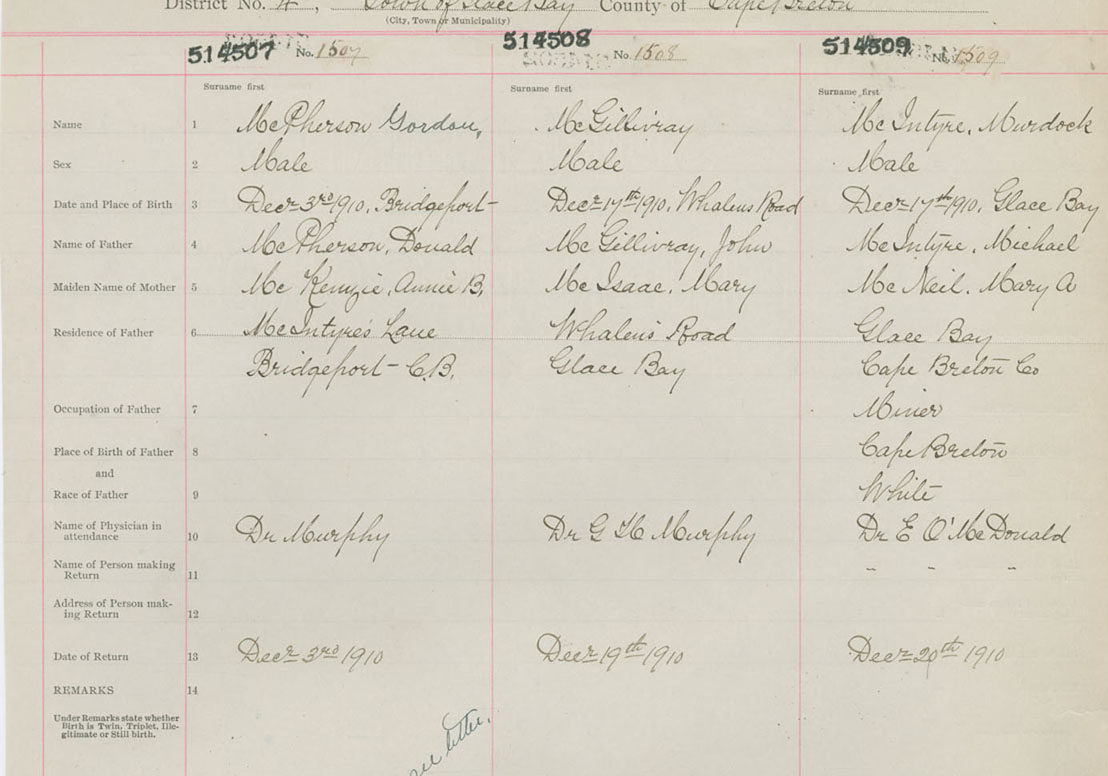 District No. 4, Town of Glace Bay County of Cape Breton
(City, Town or Municipality)
514507 No. 1507 514508 No. 1508 514509 No. 1509
Surname first Surname first Surname first
Name 1 McPherson Gordon, McGillivray McIntyre, Murdock
Sex 2 Male Male Male
Date and Place of Birth 3 Decr 3rd 1910, Bridgeport Decr 17th 1910, Whalens Road Decr 17th 1910, Glace Bay
Name of Father 4 McPherson, Donald McGillivray, John McIntyre, Michael
Maiden Name of Mother 5 McKenzie, Annie B. McIsaac, Mary McNeil, Mary A
Residence of Father 6 McIntyre's Lane Whalen's Road Glace Bay
Bridgeport - C.B. Glace Bay Cape Breton Co
Occupation of Father 7 Miner
Place of Birth of Father 8 Cape Breton
and
Race of Father 9 White
Name of Physician in
attendance 10 Dr Murphy Dr G H Murphy Dr E O'McDonald
Name of Person making
Return 11 " " "
Address of Person mak-
ing Return 12
Date of Return 13 Decr 3rd 1910 Decr 19th 1910 Decr 20th 1910
REMARKS 14
Under Remarks state whether
Birth is Twin, Triplet, Ille-
gitimate or Still birth.
letter.